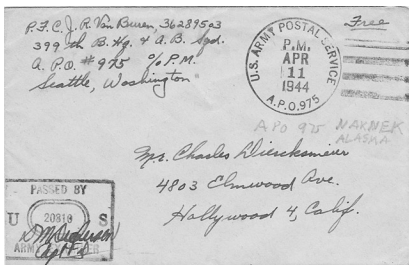 P.F.C. J. R. Van Buren 36289503
399th B. Hq. & A. B. Sqd.
A. P. O. # 975 c/o P.M.
Seattle, Washington
U.S. ARMY POSTAL SERVICE
P.M.
APR
11
1944
A.P.O. 975
Free
APO 975 NAKNEK
ALASKA
Mr. Charles Diercksmeier
4803 Elmwood Ave.
Hollywood 4, Calif.
PASSED BY
U 20810 S
ARMY EXAMINER